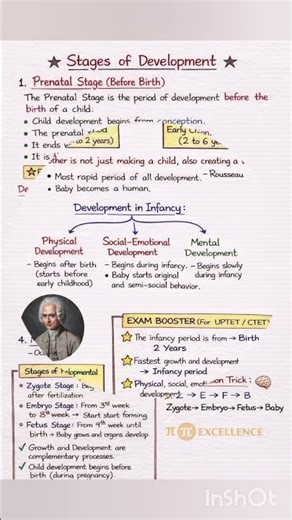 ★ Stages of Development ★
1. Prenatal Stage (Before Birth)
The Prenatal Stage is the period of development before the
birth of a child.
• Child development begins from conception.
• The prenatal
to 2 years)
Early
(2 to 6
• It ends
• It is
other is not just making a child, also creating a
– Rousseau
• Most rapid period of all development.
• Baby becomes a human.
De
Development in Infancy:
Physical
Development
– Begins after birth
(starts before
early childhood)
Social-Emotional
Development
– Begins during infancy.
• Baby starts original
and semi-social behavior.
Mental
Development
– Begins slowly
during infancy
4.
EXAM BOOSTER (For UPTET / CTET)
The infancy period is from → Birth
2 Years
Fastest growth and development
→ Infancy period
Physical, social,
development
Trick:
Z → E → F → B
Zygote → Embryo → Fetus → Baby
Stages of
• Zygote Stage:
after fertilization
• Embryo Stage: From 3rd week
to 8th week → Start start forming
• Fetus Stage: From 9th week until
birth → Baby grows and organs develop
✓ Growth and Development are
complementary processes.
✓ Child development begins before
birth (during pregnancy).
EXCELLENCE
InShOt